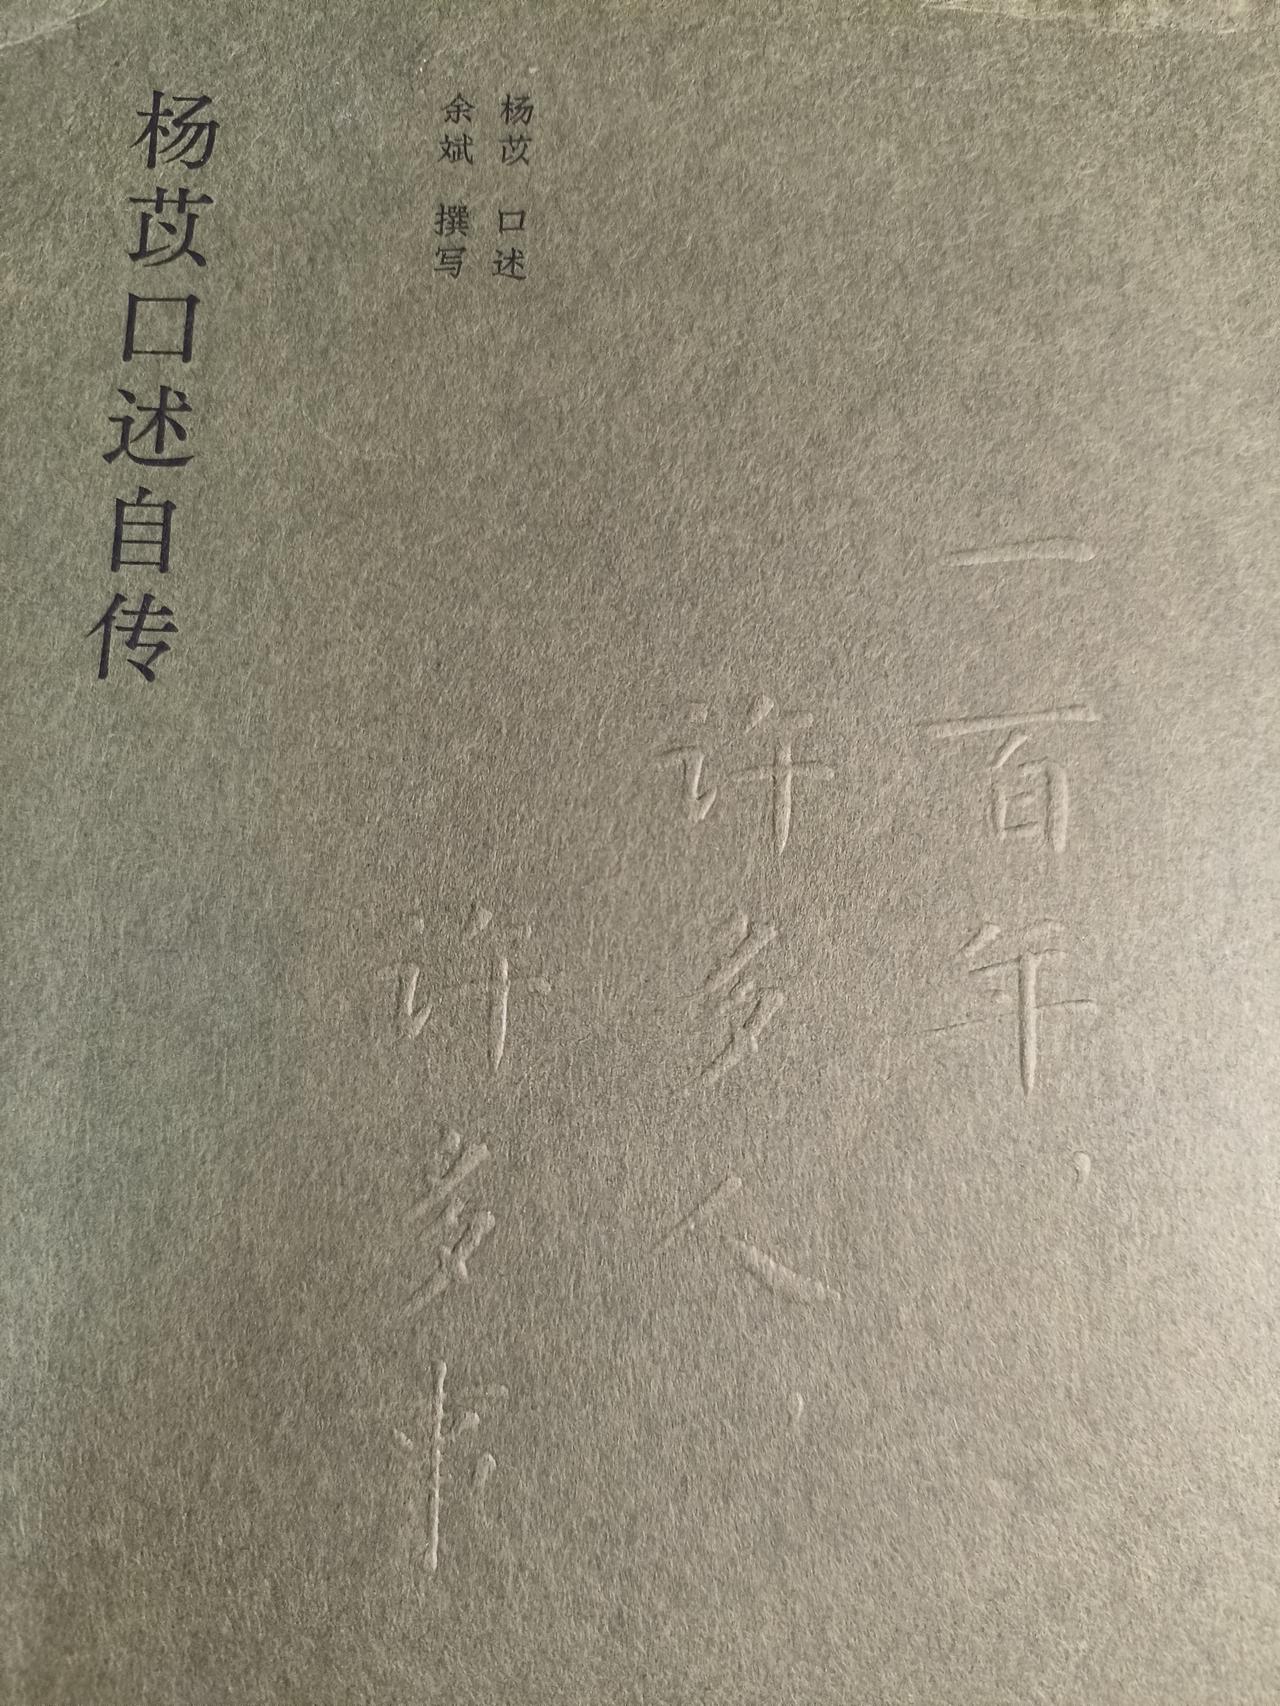 一百年，
许多人，
许多事
杨苡 口述
余斌 撰写
杨苡口述自传